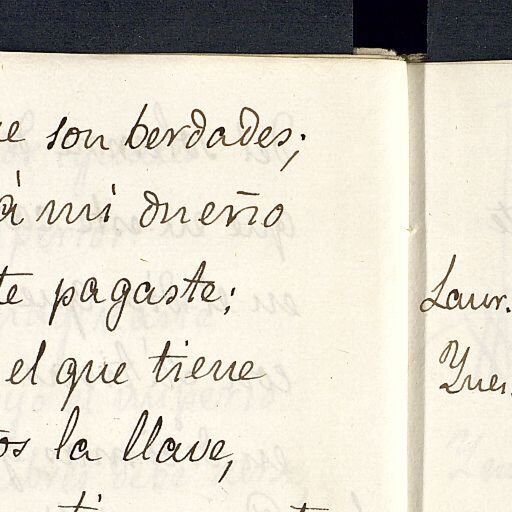 son berdades;
à mi dueño
te pagaste;
el que tiene
la llave,
Laur.
Ynes.